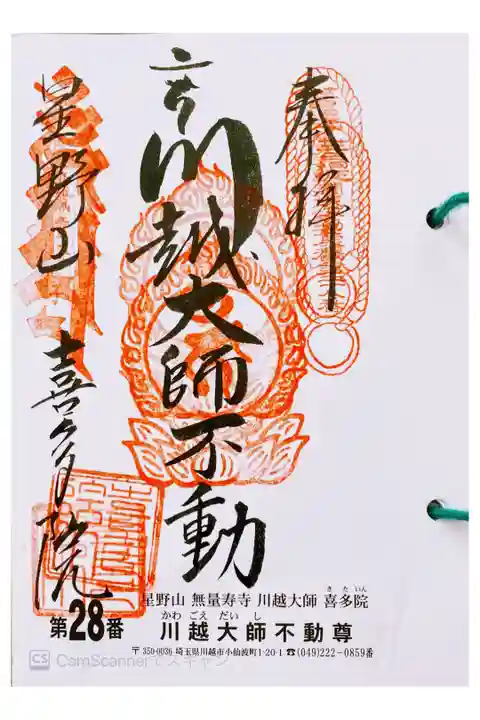 奉拝
川越大師不動
星野山 喜多院
星野山 無量寿寺 川越大師 喜多院
きたいん
第28番
かわごえだいし
川越大師不動尊
〒350-0036 埼玉県川越市小仙波町1-20-1 ☎(049)222-0859番
CS CamScannerでスキャン